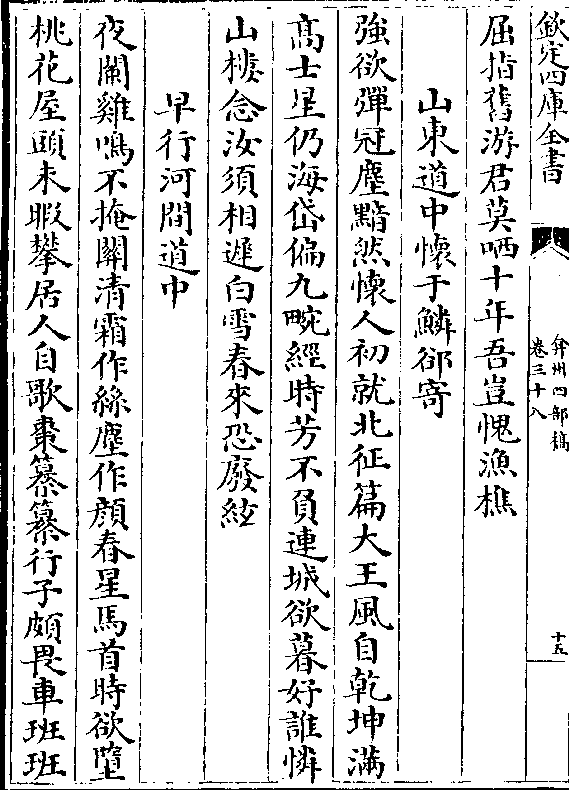 欽定四庫全書
弇州四部稿
卷三十八
十五
屈指舊游君莫哂十年吾豈愧漁樵
山東道中懷于鱗郤寄
強欲彈冠塵黯然懷人初就北征篇大王風自乾坤滿
高士星仍海岱偏九畹經時芳不負連城欲暮好誰憐
山樓念汝須相遲白雪春來恐廢絃
早行河間道中
夜闌雞鳴不掩關清霜作絲塵作顔春星馬首時欲墮
桃花屋頭未暇攀居人自歌棗纂纂行子頗畏車班班